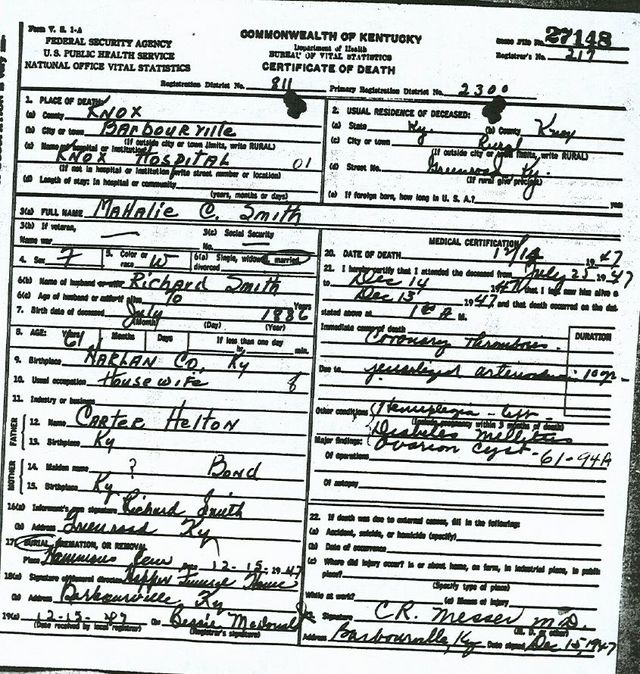 Form V. S. 1-A
FEDERAL SECURITY AGENCY
U. S. PUBLIC HEALTH SERVICE
NATIONAL OFFICE VITAL STATISTICS
COMMONWEALTH OF KENTUCKY
Department of Health
BUREAU OF VITAL STATISTICS
CERTIFICATE OF DEATH
File No. 27148
Registrar's No. 217
Registration District No. 811 Primary Registration District No. 2300
1. PLACE OF DEATH
(a) County KNOX
(b) City or town BARBOURVILLE
(If outside city or town limits, write RURAL)
(c) Name of hospital or institution
KNOX HOSPITAL 01
(If not in hospital or institution write street number or location)
(d) Length of stay: in hospital or community
(years, months or days)
2. USUAL RESIDENCE OF DECEASED:
(a) State Ky. (b) County Knox
(c) City or town Rural
(If outside city or town limits, write RURAL)
(d) Street No. Greenroad Ky.
(If rural give precinct)
(e) If foreign born, how long in U. S. A.? years
3(a) FULL NAME Mahalie C. Smith
3(b) If veteran,
Name war
3(c) Social Security
No.
4. Sex F 5. Color or race W 6(a) Single, widowed, married, divorced
6(b) Name of husband or wife Richard Smith
6(c) Age of husband or wife if alive 70 Years
7. Birth date of deceased July 1886
(Month) (Day) (Year)
8. AGE: Years 61 Months Days If less than one day
hr. min.
9. Birthplace HARLAN CO. Ky
10. Usual occupation Housewife 8
11. Industry or business
FATHER
12. Name CARTER HELTON
13. Birthplace Ky
MOTHER
14. Maiden name ? Bond
15. Birthplace Ky
16(a) Informant's own signature Richard Smith
(b) Address Greenroad Ky
17. BURIAL, CREMATION, OR REMOVAL
Place Hammons Date 12-15-1947
18(a) Signature of funeral director Hopper Funeral Home
(b) Address Barbourville Ky
19(a) 12-15-47 (b) Bessie McDonald
(Date received by local registrar) (Registrar's signature)
MEDICAL CERTIFICATION
20. DATE OF DEATH 12/14 1947
21. I hereby certify that I attended the deceased from July 25 1947
to Dec 14 1947 that I last saw him alive on
Dec 13 1947 and that death occurred on the date
stated above at M.
Immediate cause of death
DURATION
Coronary thrombosis
Due to
Other conditions Hemiplegia - left
(Include pregnancy within 3 months of death)
Diabetes Mellitus
Major findings: Ovarian cyst - 61-94A
Of operations
Of autopsy
22. If death was due to external causes, fill in the following:
(a) Accident, suicide, or homicide (specify)
(b) Date of occurrence
(c) Where did injury occur? in or about home, on farm, in industrial place, in public
place?
(Specify type of place)
While at work? (e) Means of injury
Signature C.R. Messer M.D.
(M. D. or other)
Address Barbourville, Ky Date signed Dec 15, 1947